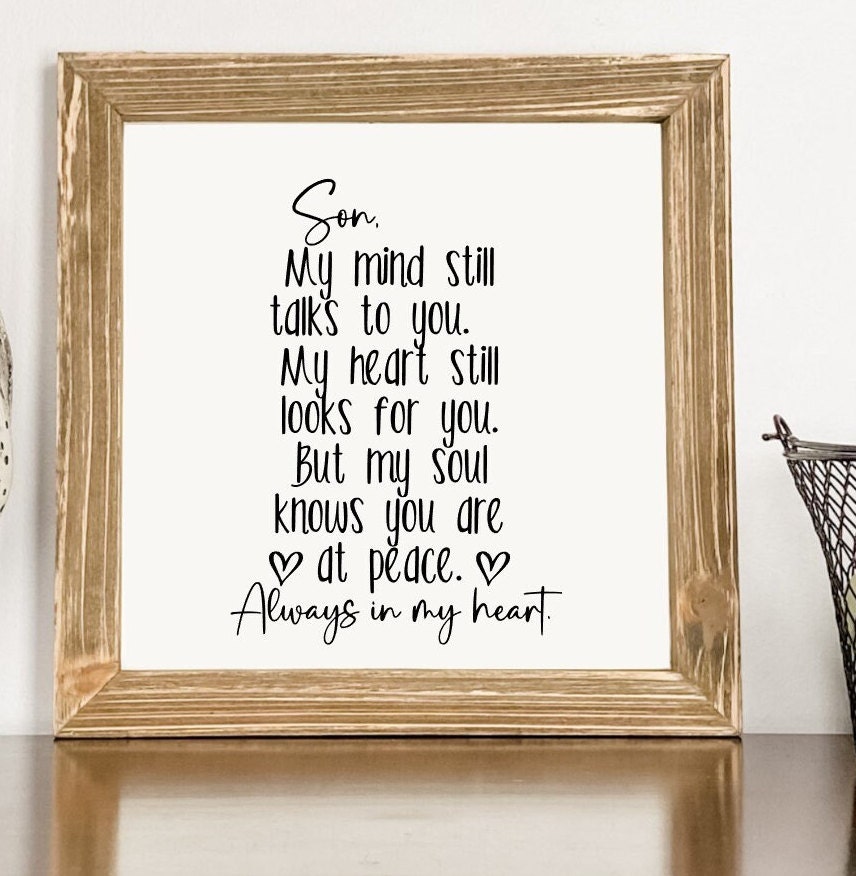 Son,
My mind still
talks to you.
My heart still
looks for you.
But my soul
knows you are
♡ at peace. ♡
Always in my heart.